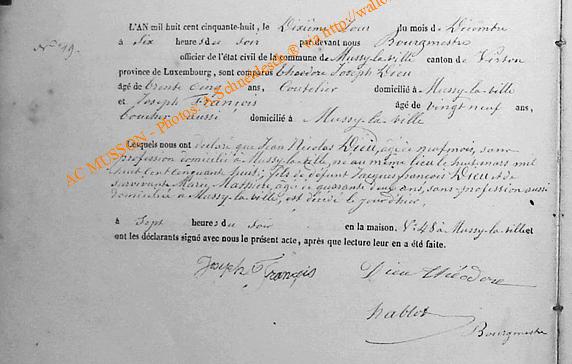 N° 19.
L'AN mil huit cent cinquante-huit, le Dixième Jour du mois de Décembre
à Six heures du soir par devant nous Bourgmestre
officier de l'état civil de la commune de Mussy-la-ville canton de Virton
province de Luxembourg, sont comparus Théodore Joseph Dieu
âgé de trente cinq ans, Coutelier domicilié à Mussy-la-ville
et Joseph François âgé de vingt neuf ans,
aussi domicilié à Mussy-la-ville
Lesquels nous ont déclaré que Jean Nicolas Dieu, âgé de neuf mois, sans
profession domicilié à Mussy-la-ville, né au même lieu le huit mars mil
huit cent cinquante huit; fils de défunt Jacques françois Dieu et de
survivante Marie, âgée de quarante deux ans, sans profession aussi
domiciliée à Mussy-la-ville, est décédé le jour d'hier,
à Sept heures du soir en la maison N° 48 à Mussy-la-ville et
ont les déclarants signé avec nous le présent acte, après que lecture leur en a été faite.
Joseph François
Dieu théodore
hablot
Bourgmestre
AC MUSSON - Photos J. Schneidesch @ via http://wallo